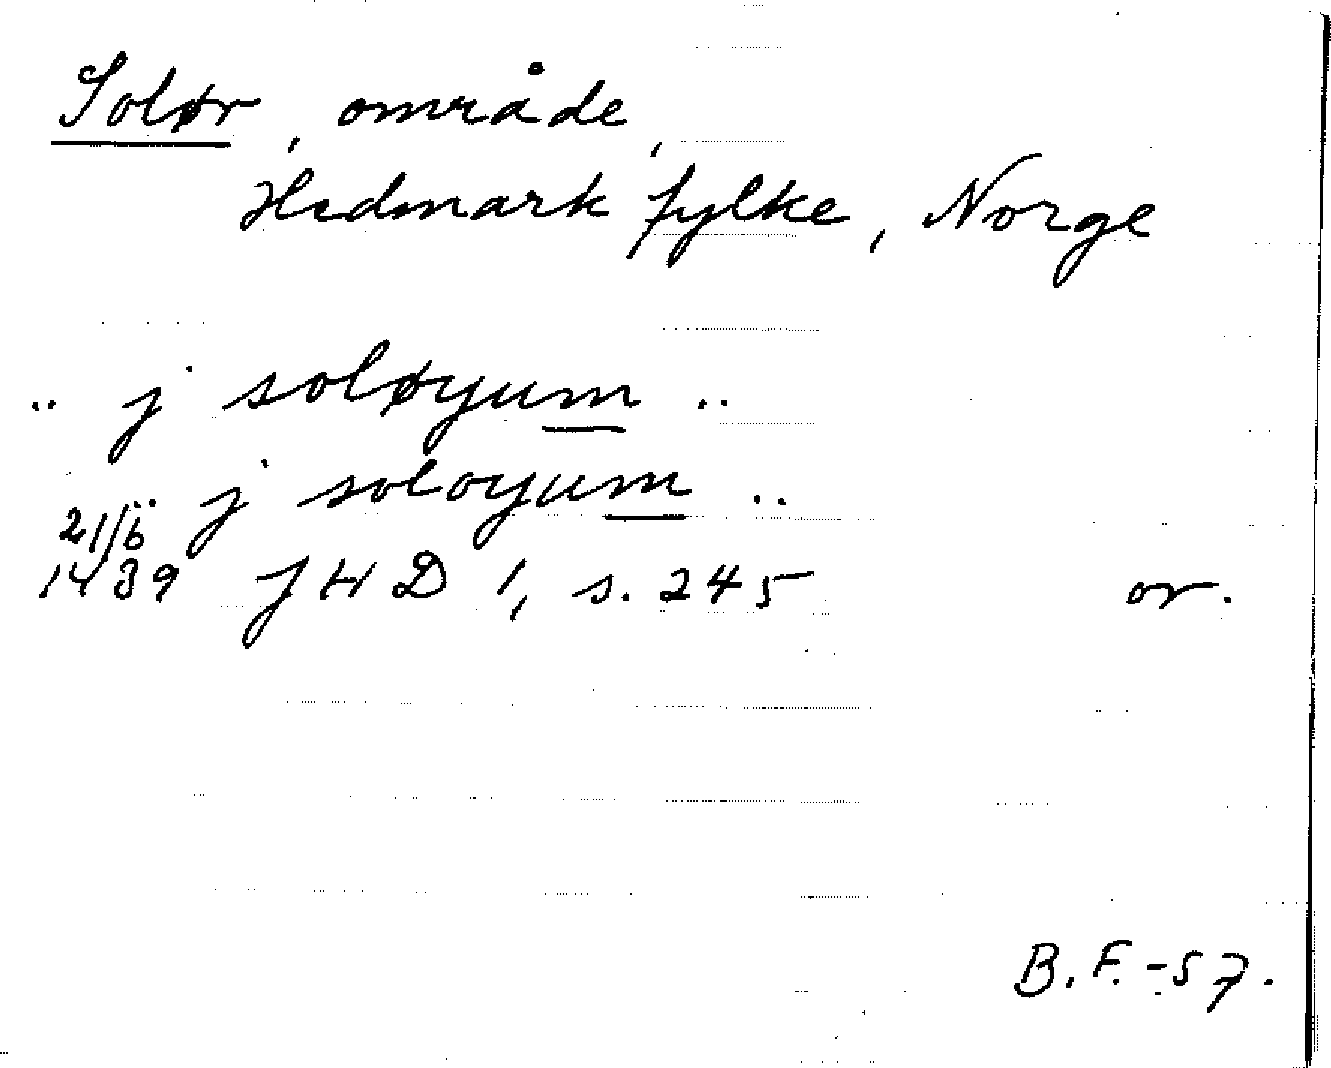 Solør, område,
Hedmark fylke, Norge
.. j soløyum ..
.. j soloyum ..
21/6
1439 JHD 1, s. 245 or.
B.F. -57.